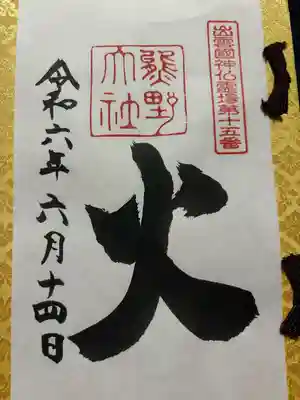 出雲國神仏霊場第十五番
熊野
大社
火
令和六年六月十四日